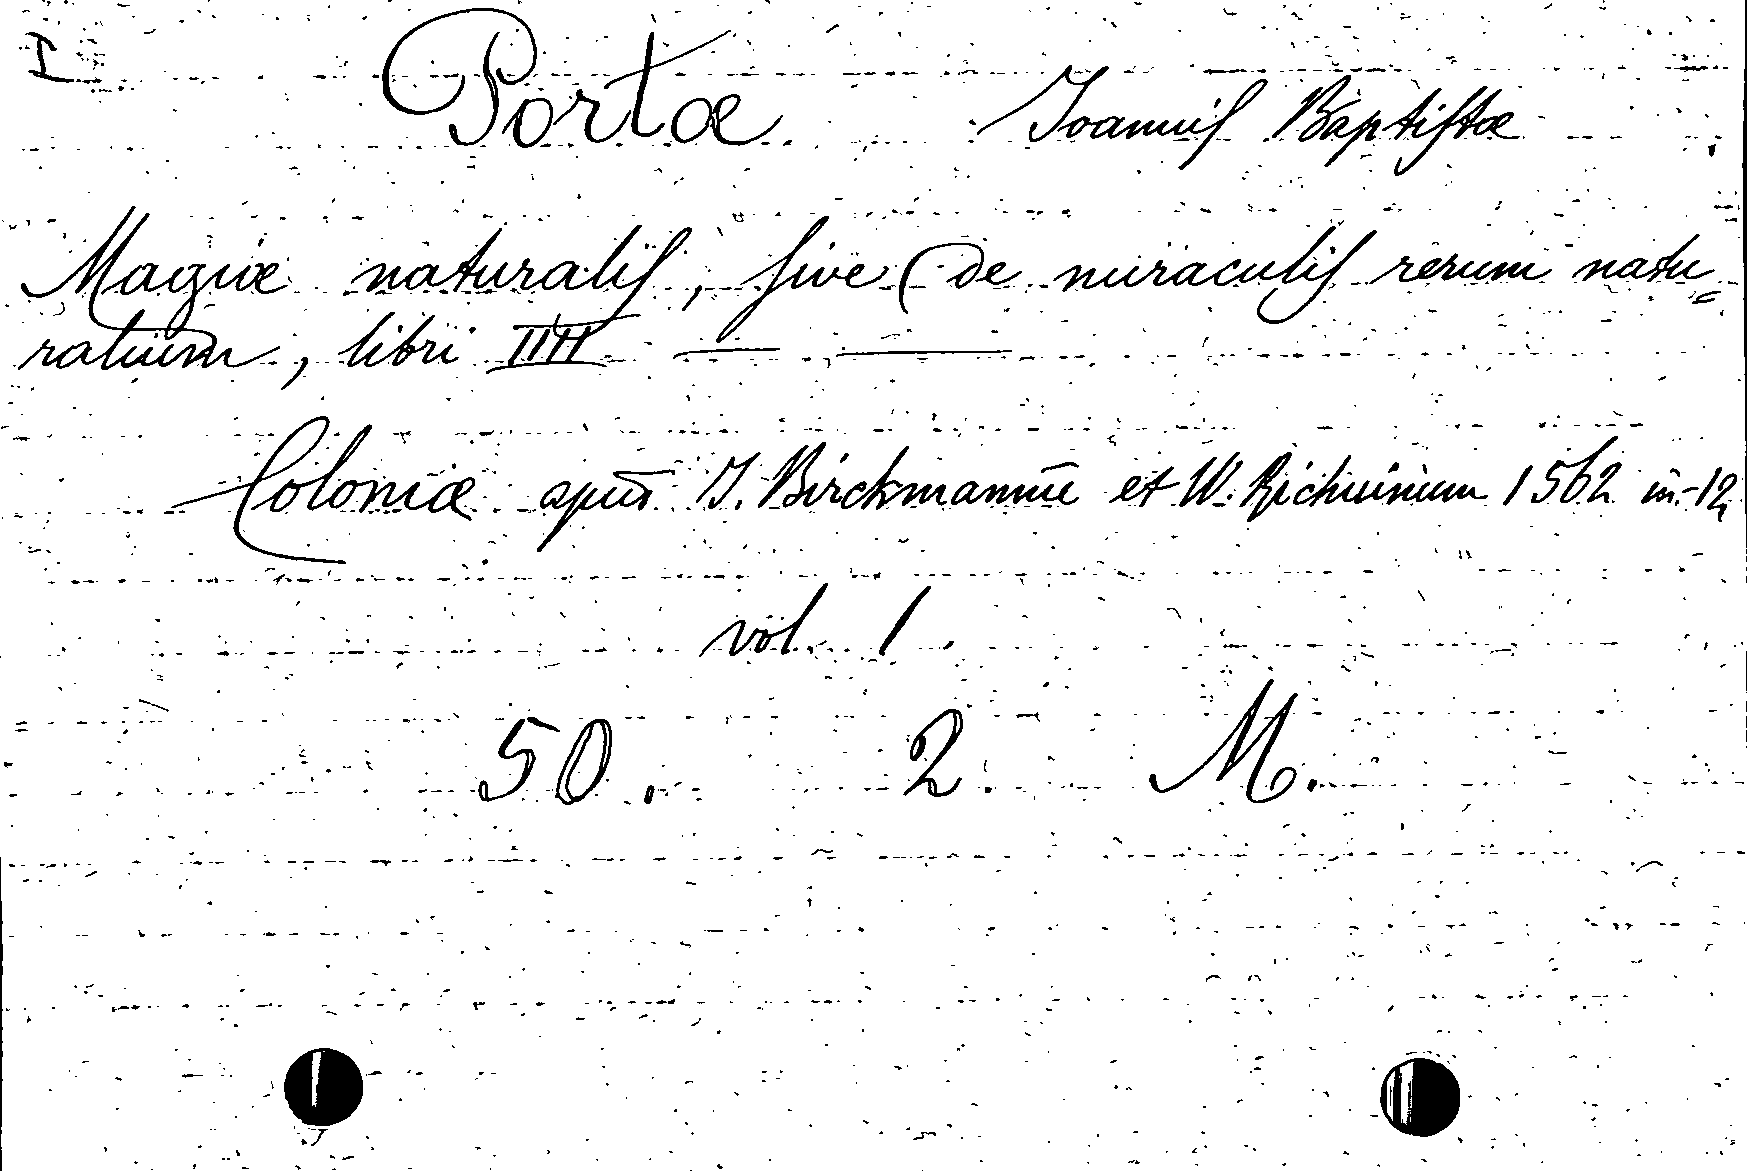 I
Portæ Joannis Baptistæ
Magiæ naturalis, sive de miraculis rerum natu=
ralium, libri IIII
Coloniæ apud J. Birckmannū et W. Richwinum 1562 in-12
vol. 1.
50. 2. M.